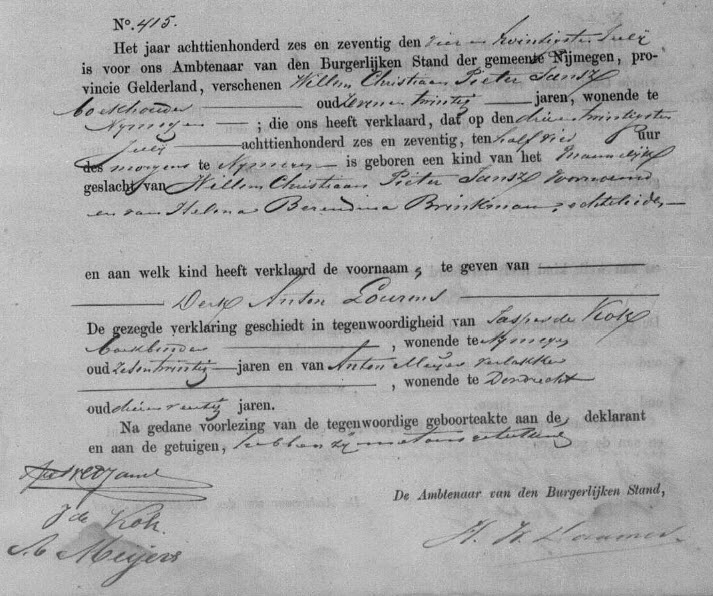 No. 415.
Het jaar achttienhonderd zes en zeventig den Vier en twintigsten Julij
is voor ons Ambtenaar van den Burgerlijken Stand der gemeente Nijmegen, pro-
vincie Gelderland, verschenen Willem Christiaan Pieter Jansz
boekhouder oud zevenentwintig jaren, wonende te
Nijmegen ; die ons heeft verklaard, dat op den drieentwintigsten
Julij achttienhonderd zes en zeventig, ten half vier uur
des morgens te Nijmegen is geboren een kind van het mannelijk
geslacht van Willem Christiaan Pieter Jansz voornoemd
en van Helena Berendina Brinkman, echtelieden
en aan welk kind heeft verklaard de voornaam, te geven van
Derk Anton Lourens
De gezegde verklaring geschiedt in tegenwoordigheid van de Kok
boekbinder , wonende te Nijmegen
oud zesentwintig jaren en van Anton Meijers
, wonende te Dordrecht
oud jaren.
Na gedane voorlezing van de tegenwoordige geboorteakte aan de deklarant
en aan de getuigen, hebben zij met ons geteekend
J de Kok.
A. Meijers
De Ambtenaar van den Burgerlijken Stand,